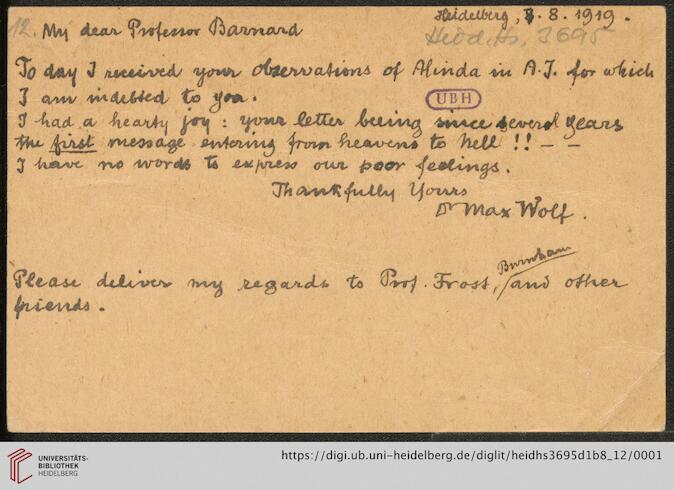 Heidelberg, 3. 8. 1919.
12. My dear Professor Barnard
Heid. Hs. 3695
To day I received your observations of Alinda in A.J. for which
I am indebted to you.
UBH
I had a hearty joy : your letter beeing since several years
the first message entering from heavens to hell !! – –
I have no words to express our poor feelings.
Thankfully Yours
Dr Max Wolf.
Burnham
Please deliver my regards to Prof. Frost, / and other
friends.
UNIVERSITÄTS-
BIBLIOTHEK
HEIDELBERG
https://digi.ub.uni-heidelberg.de/diglit/heidhs3695d1b8_12/0001